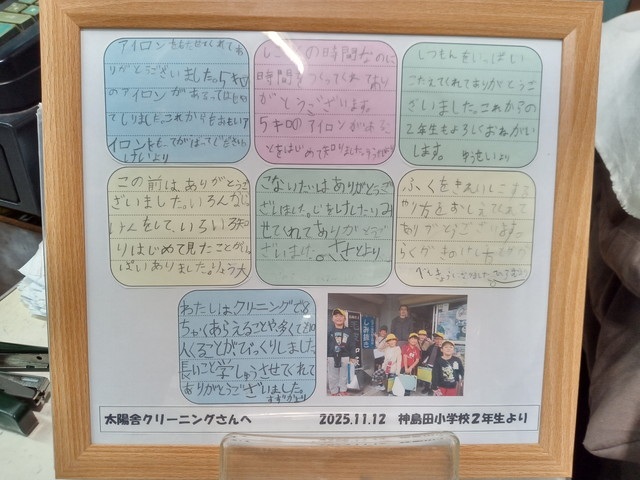 アイロンをもたせてくれてあ
りがとうございました。5キロ
のアイロンがあるってはじめ
てしりました。これからもおもいア
イロンをもってがんばってください。
けいより
の時間なのに
時間をつくってくれてあり
がとうございます。
5キロのアイロンがある
ことをはじめて知りました。
しつもんをいっぱい
こたえてくれてありがとうご
ざいました。これからの
2年生もよろしくおねがい
します。
この前はありがとうご
ざいました。いろんな
けんをして、いろいろ知
りはじめて見たことがい
ぱいありました。りょう大
こないだはありがとうご
ざいました。しみをけしたりみ
せてくれてありがとうご
ざいました。ささとより
ふくをきれいにする
やり方をおしえてくれて
ありがとうございます。
わたしは、クリーニングで8
ちゃくあらえることや、多くて80
人くることがびっくりしました。
長いこと学しゅうさせてくれて
ありがとうございました。
太陽舎クリーニングさんへ 2025.11.12 神島田小学校2年生より